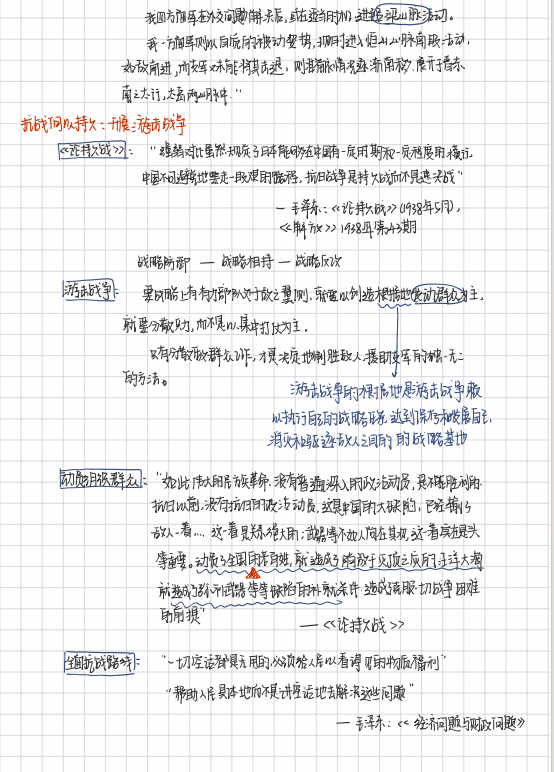 我四方面军在外交问题解决后,或在适当时机,进绥远山脉活动。
我一方面军则以自后的被动姿势,现时进入恒山山脉南段活动,
如敌南进,而友军又未能将其击退,则准备依情况逐渐南移,展开于晋东
南之太行,太岳两山脉中."
抗战何以持久:开展游击战争
《论持久战》: "强弱对比虽然规定了日本能够在中国有一定时期和一定程度的横行,
中国不可避免地要走一段艰难的路程,抗日战争是持久战而不是速决战"
— 毛泽东:《论持久战》(1938年5月),
《解放》1938年第43期
战略防御 — 战略相持 — 战略反攻
游击战争: 要战略上有有力部队处于敌之翼侧,就要以创造根据地发动群众为主,
就要分散兵力,而不是以集中打仗为主.
只有分散做群众工作,才是决定地制胜敌人,援助友军的独一无二
的方法。
游击战争的根据地是游击战争赖
以执行自己的战略任务,达到保存和发展自己,
消灭和驱逐敌人之目的的战略基地
动员组织群众: "如此伟大的民族革命,没有普遍深入的政治动员,是不能胜利的.
抗日以前,没有抗日的政治动员,这是中国的大缺陷,已经输了
敌人一着...,这一着是关系绝大的;武器等不如人尚在其次,这一着实在是头
等重要。动员了全国老百姓,就造成了陷敌于灭顶之灾的汪洋大海
就造成了弥补武器等等缺陷的补救条件,造成了克服一切战争困难
的前提"
— 《论持久战》
全面抗战路线: "一切空话都是无用的,必须给人民以看得见的物质福利"
"帮助人民具体地而不是讲空话地去解决这些问题"
— 毛泽东:《经济问题与财政问题》